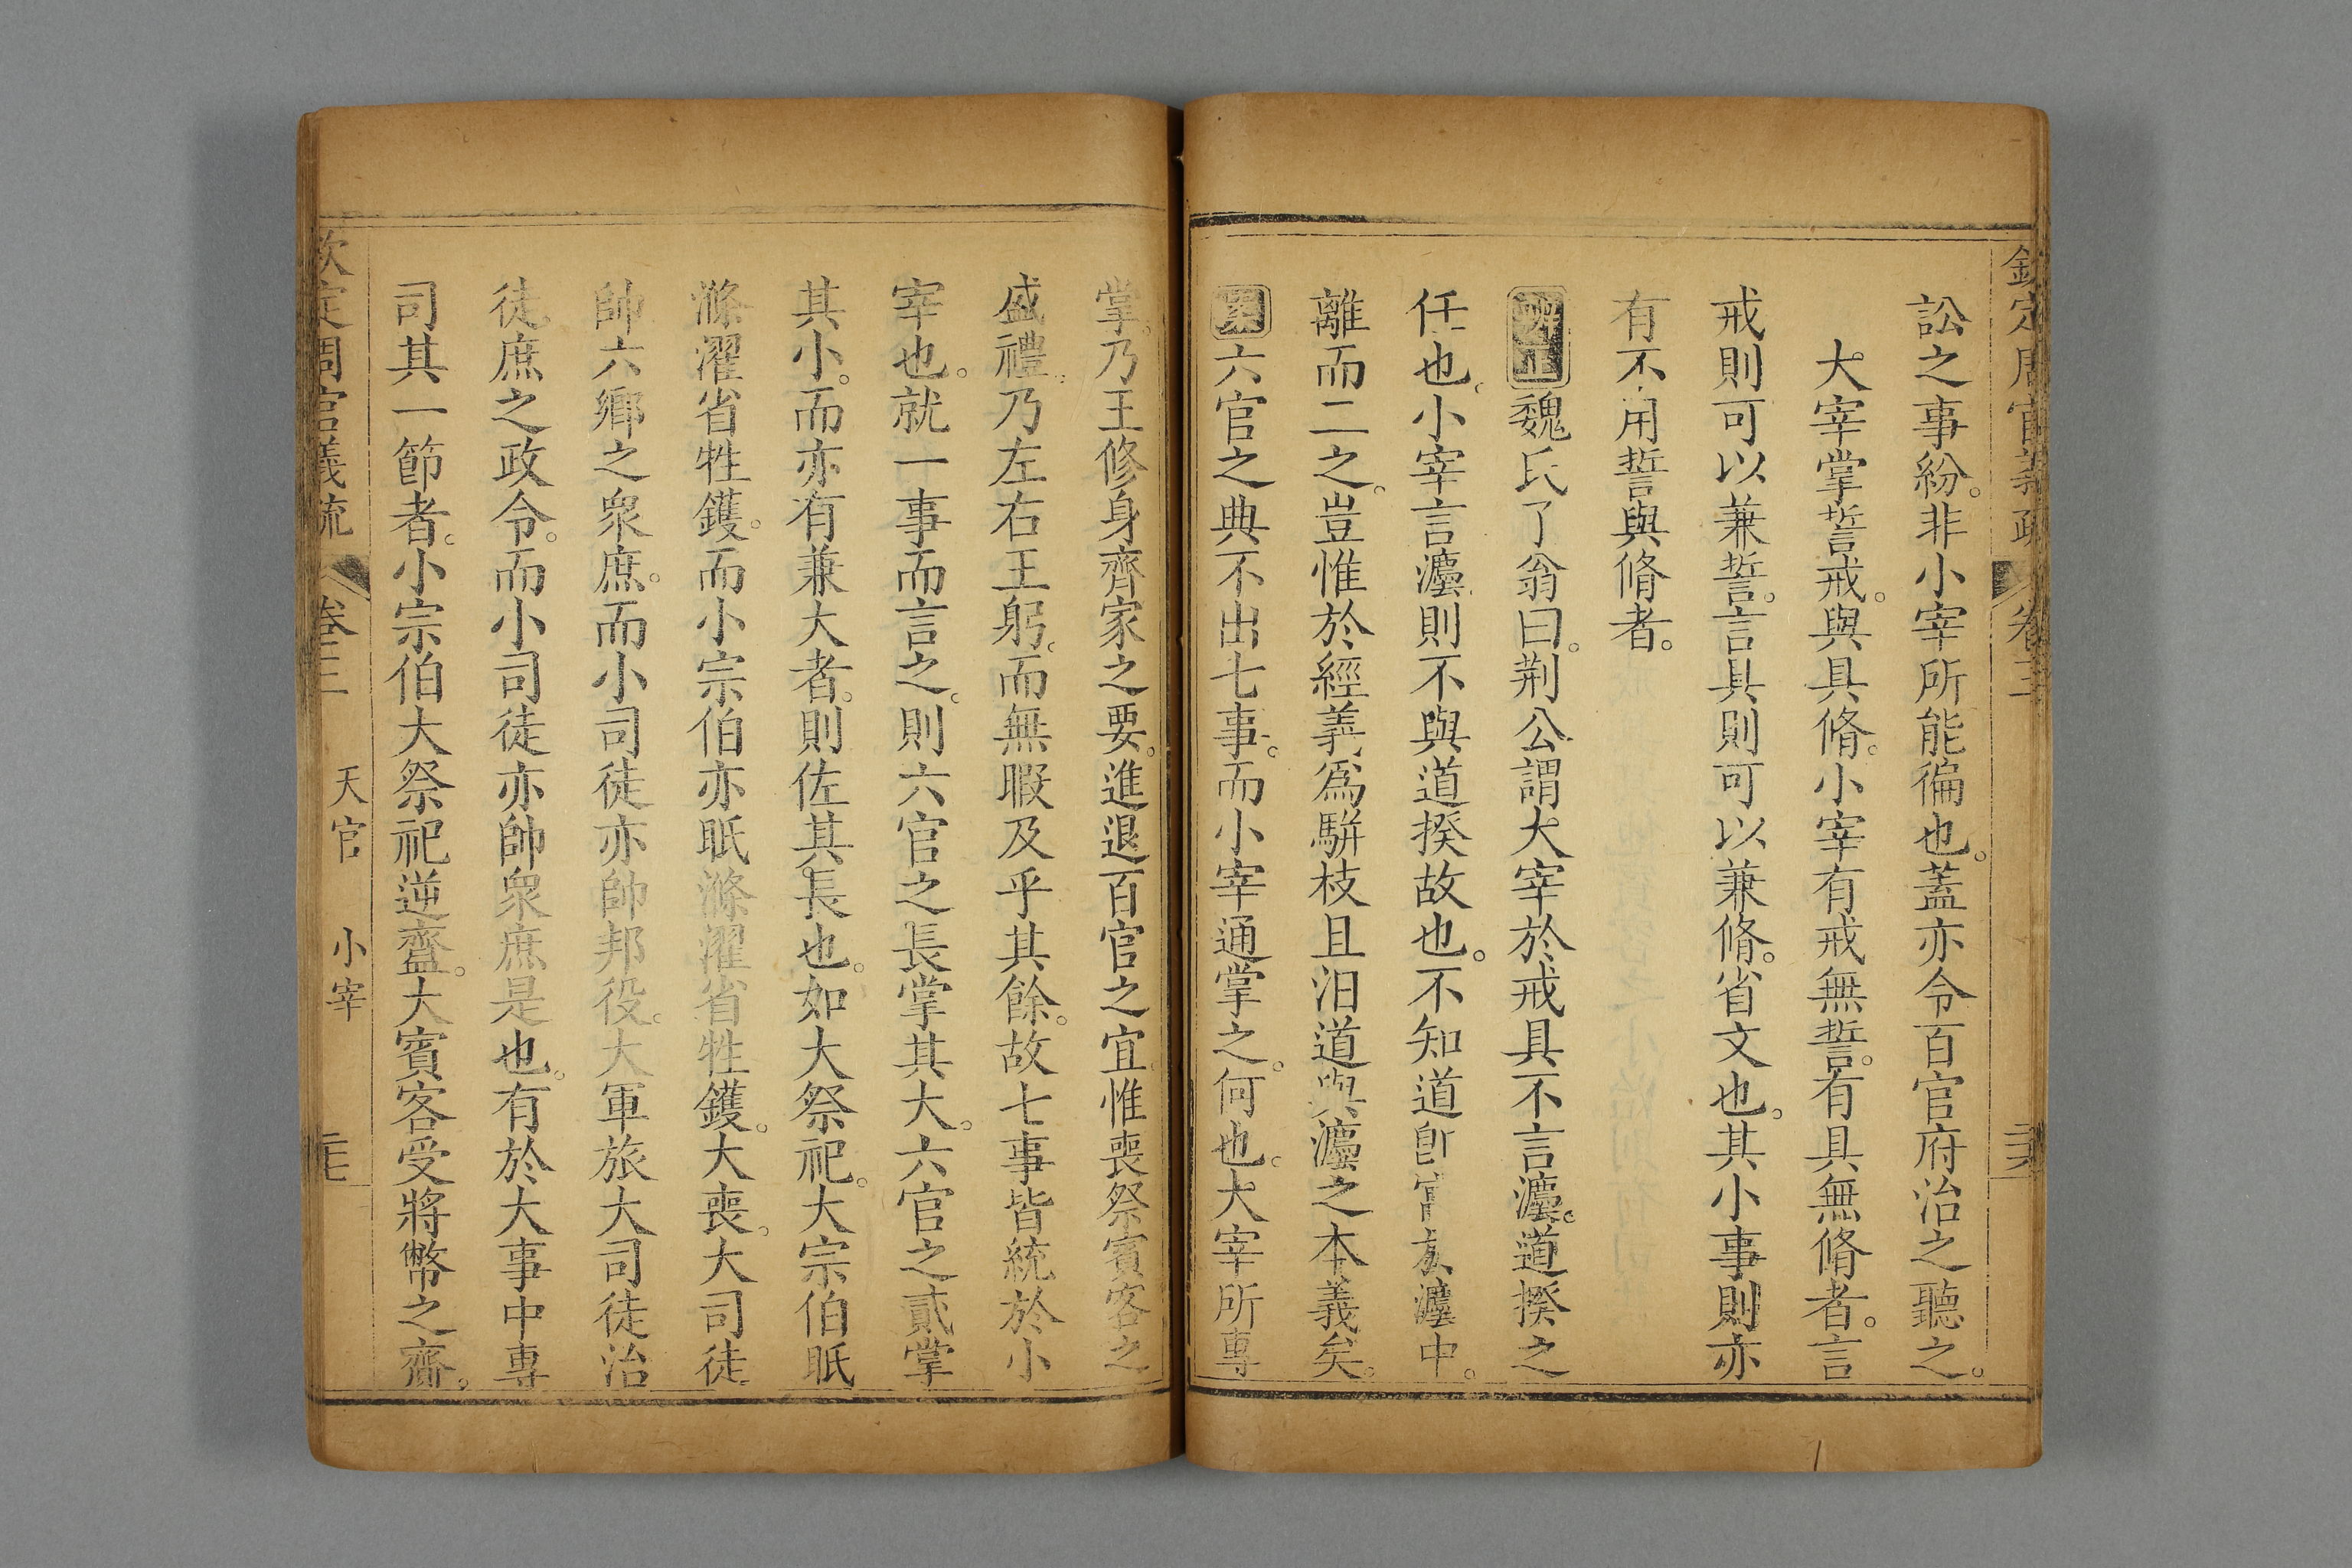 欽定周官義疏 卷三
訟之事紛。非小宰所能徧也。蓋亦令百官府治之聽之。
大宰掌誓戒。與具脩。小宰有戒無誓。有具無脩者。言
戒則可以兼誓。言具則可以兼脩。省文也。其小事則亦
有不用誓與脩者。
辨正魏氏了翁曰。荆公謂大宰於戒具不言灋。道揆之
任也。小宰言灋。則不與道揆故也。不知道卽寓於灋中。
離而二之。豈惟於經義爲駢枝且汨道與灋之本義矣。
六官之典不出七事。而小宰通掌之。何也。大宰所專
掌。乃王修身齊家之要。進退百官之宜。惟喪祭賓客之
盛禮。乃左右王躬。而無暇及乎其餘。故七事皆統於小
宰也。就一事而言之。則六官之長掌其大。六官之貳掌
其小。而亦有兼大者。則佐其長也。如大祭祀。大宗伯眂
滌濯省牲鑊。而小宗伯亦眂滌濯省牲鑊。大喪。大司徒
帥六鄉之眾庶。而小司徒亦帥邦役。大軍旅大司徒治
徒庶之政令。而小司徒亦帥眾庶是也。有於大事中專
司其一節者。小宗伯大祭祀逆齍。大賓客受將幣之齎。
欽定周官義疏 卷三 天官 小宰 二七